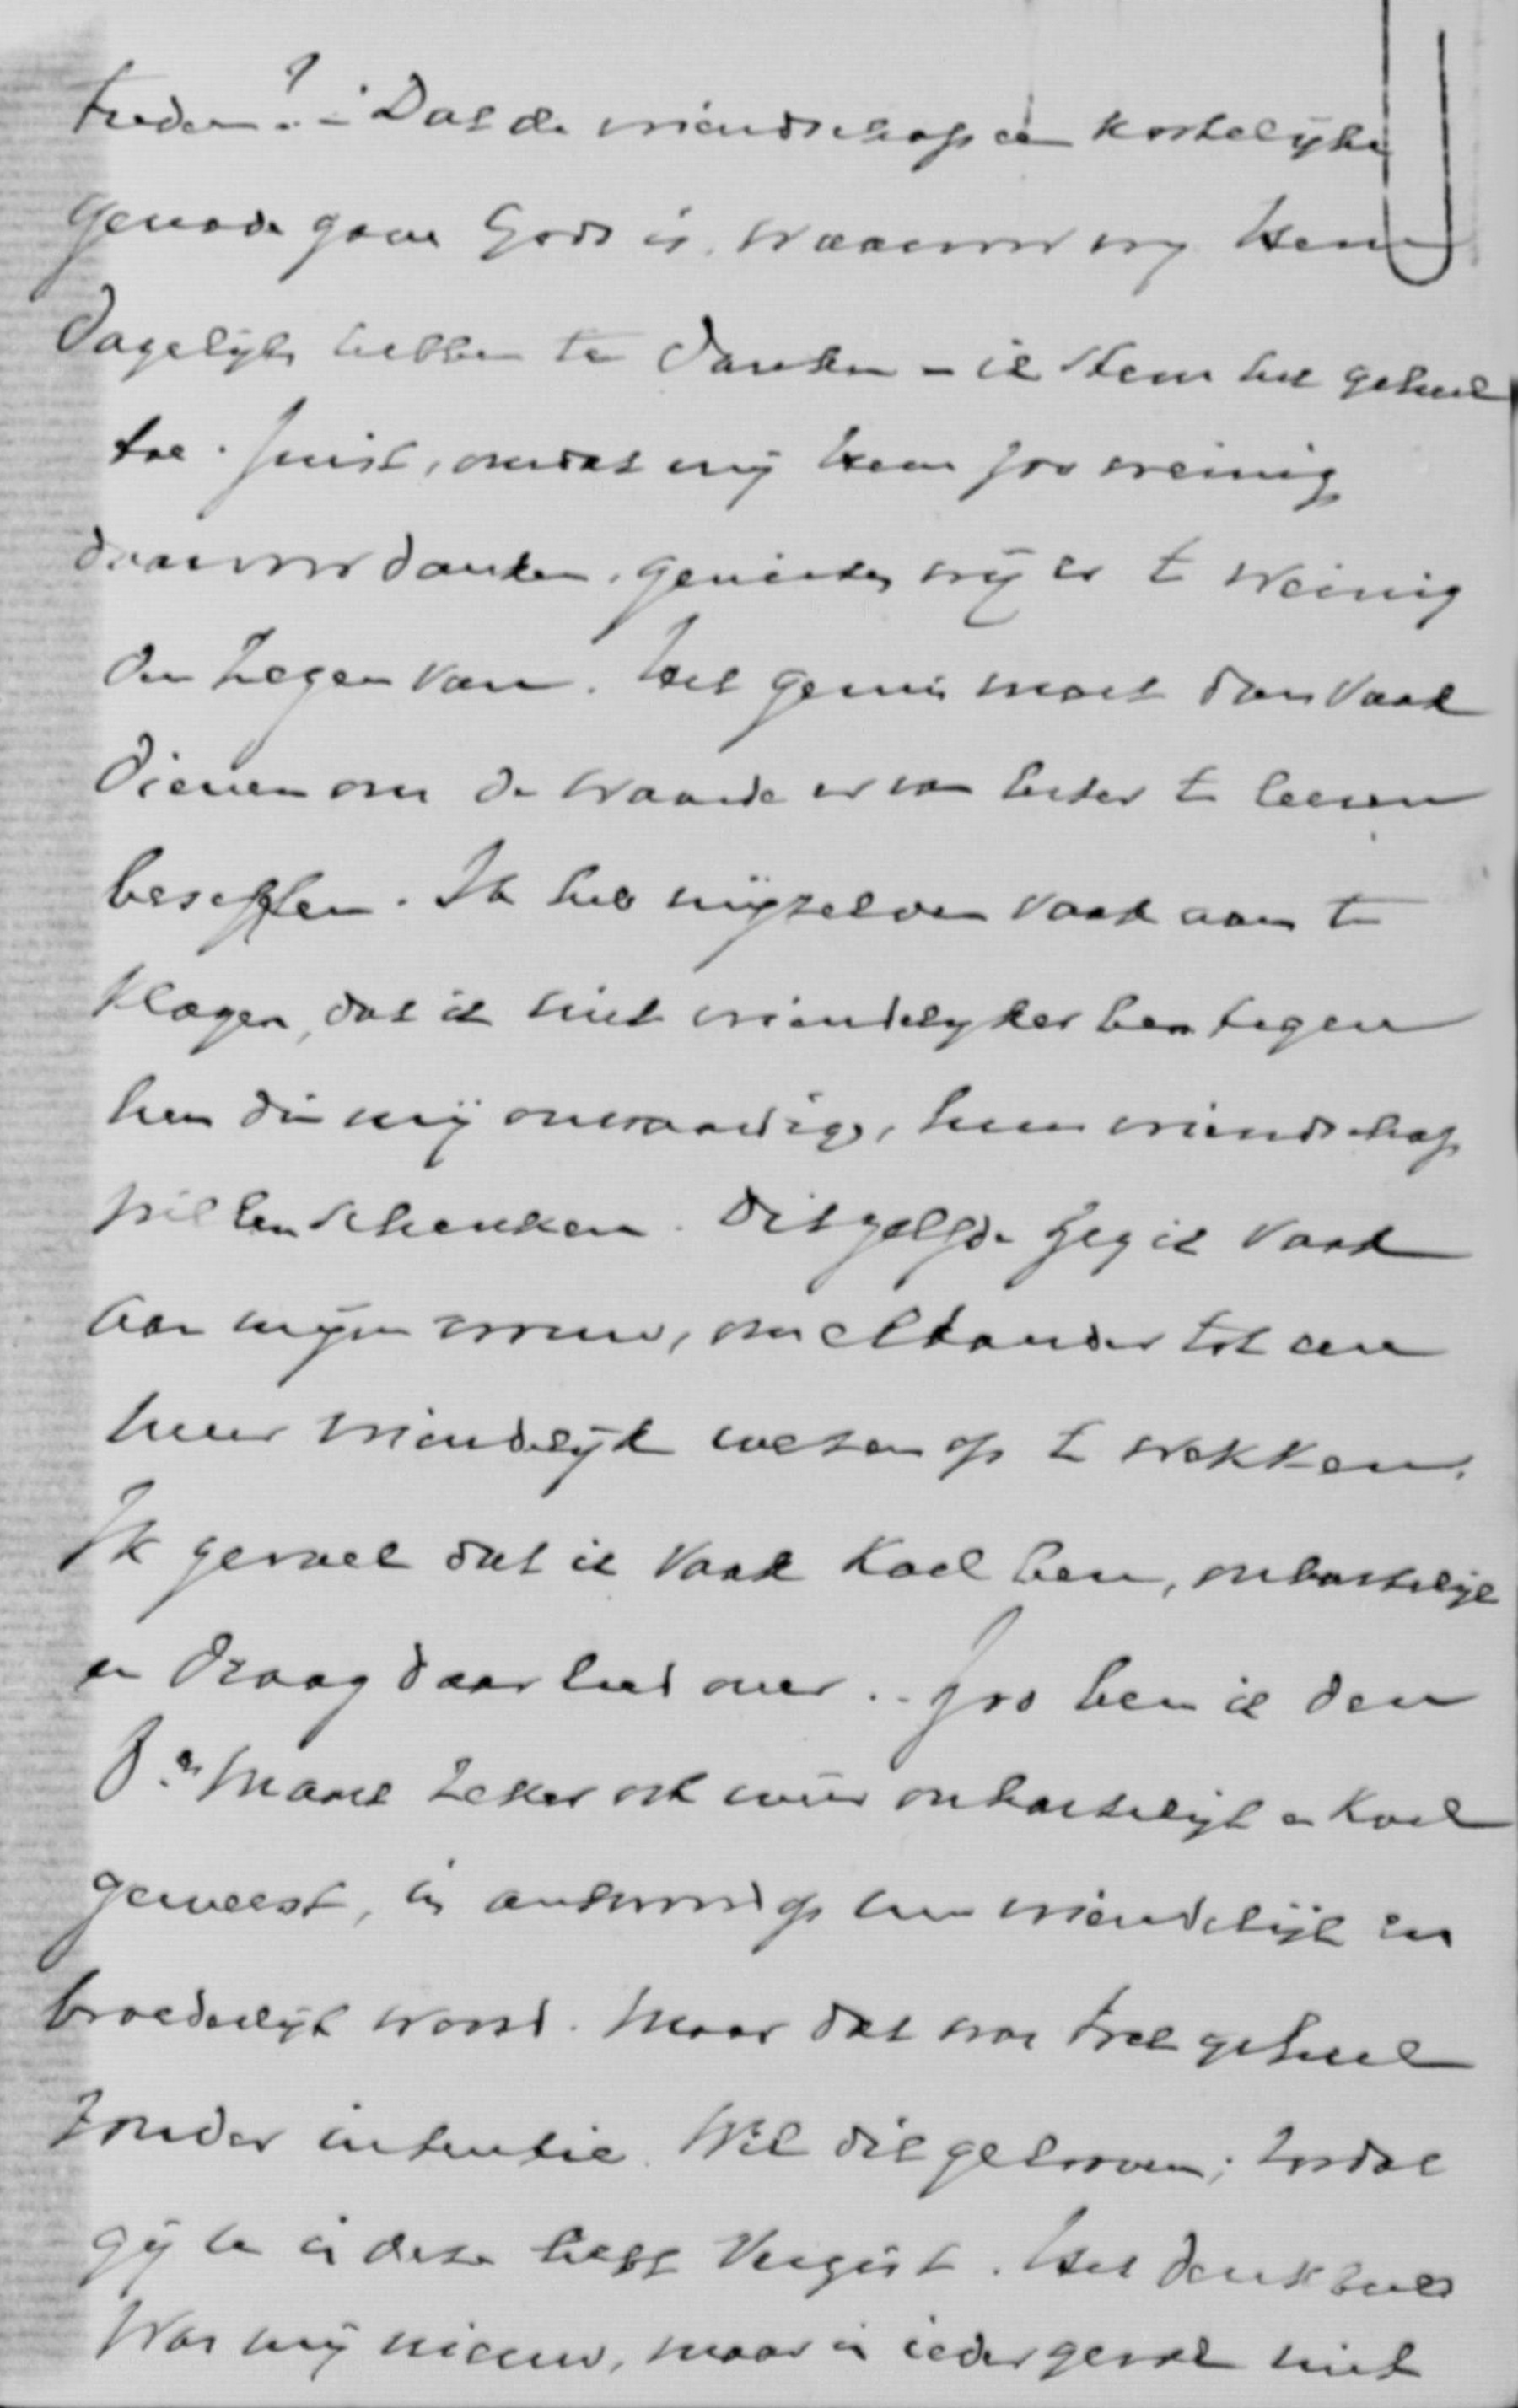 treden? - Dat de vriendschap een kostelyke
genade gave Gods is, waarvoor wy Hem
dagelyks hebben te danken - ik stem het geheel
toe. Juist, omdat wij Hem zoo weinig
daarvoor danken, genieten wij er te weinig
den zegen van. Het gemis moet dan vaak
dienen om de waarde ervan beter te leeren
beseffen. Ik heb mijzelven vaak aan te
klagen, dat ik niet vriendelyker ben tegen
hen die mij onwaardige, hun vriendschap
willen schenken. Ditzelfde zeg ik vaak
aan mijn vrouw, om elkander tot een
meer vriendelijk wezen op te wekken.
Ik gevoel dat ik vaak koel ben, onhartelijk
en draag daar leed over. - Zoo ben ik den
2en Maart zeker ook weer onhartelijk en koel
geweest, in antwoord op een vriendelijk en
broederlijk woord. Maar dat was toch geheel
zonder intentie. Wil dit gelooven; zoodat
gij U in deze hebt vergist. Het denkbeeld
was mij nieuw, maar in ieder geval niet